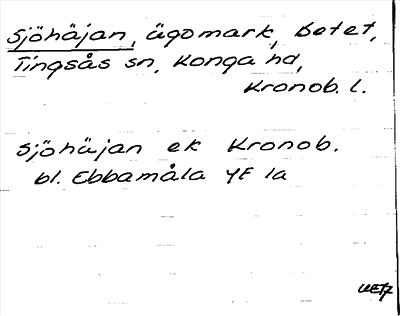 Sjöhäjan, ägomark, Betet,
Tingsås sn, Konga hd,
Kronob. l.
Sjöhäjan ek Kronob.
bl. Ebbamåla YF 1a